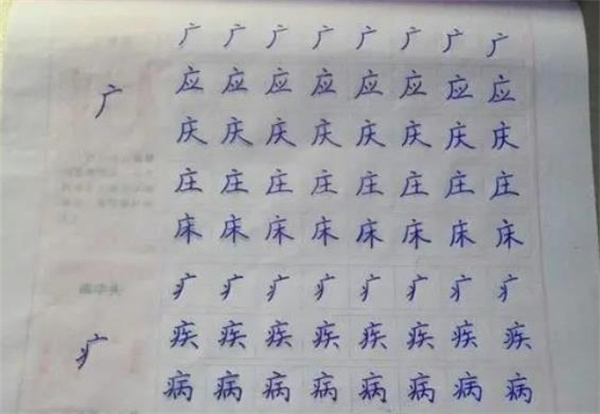 广 广 广 广 广 广 广 广
广 应 应 应 应 应 应 应 应
庆 庆 庆 庆 庆 庆 庆 庆
庄 庄 庄 庄 庄 庄 庄 庄
床 床 床 床 床 床 床 床
疒 疒 疒 疒 疒 疒 疒 疒
疒 疾 疾 疾 疾 疾 疾 疾 疾
病 病 病 病 病 病 病 病